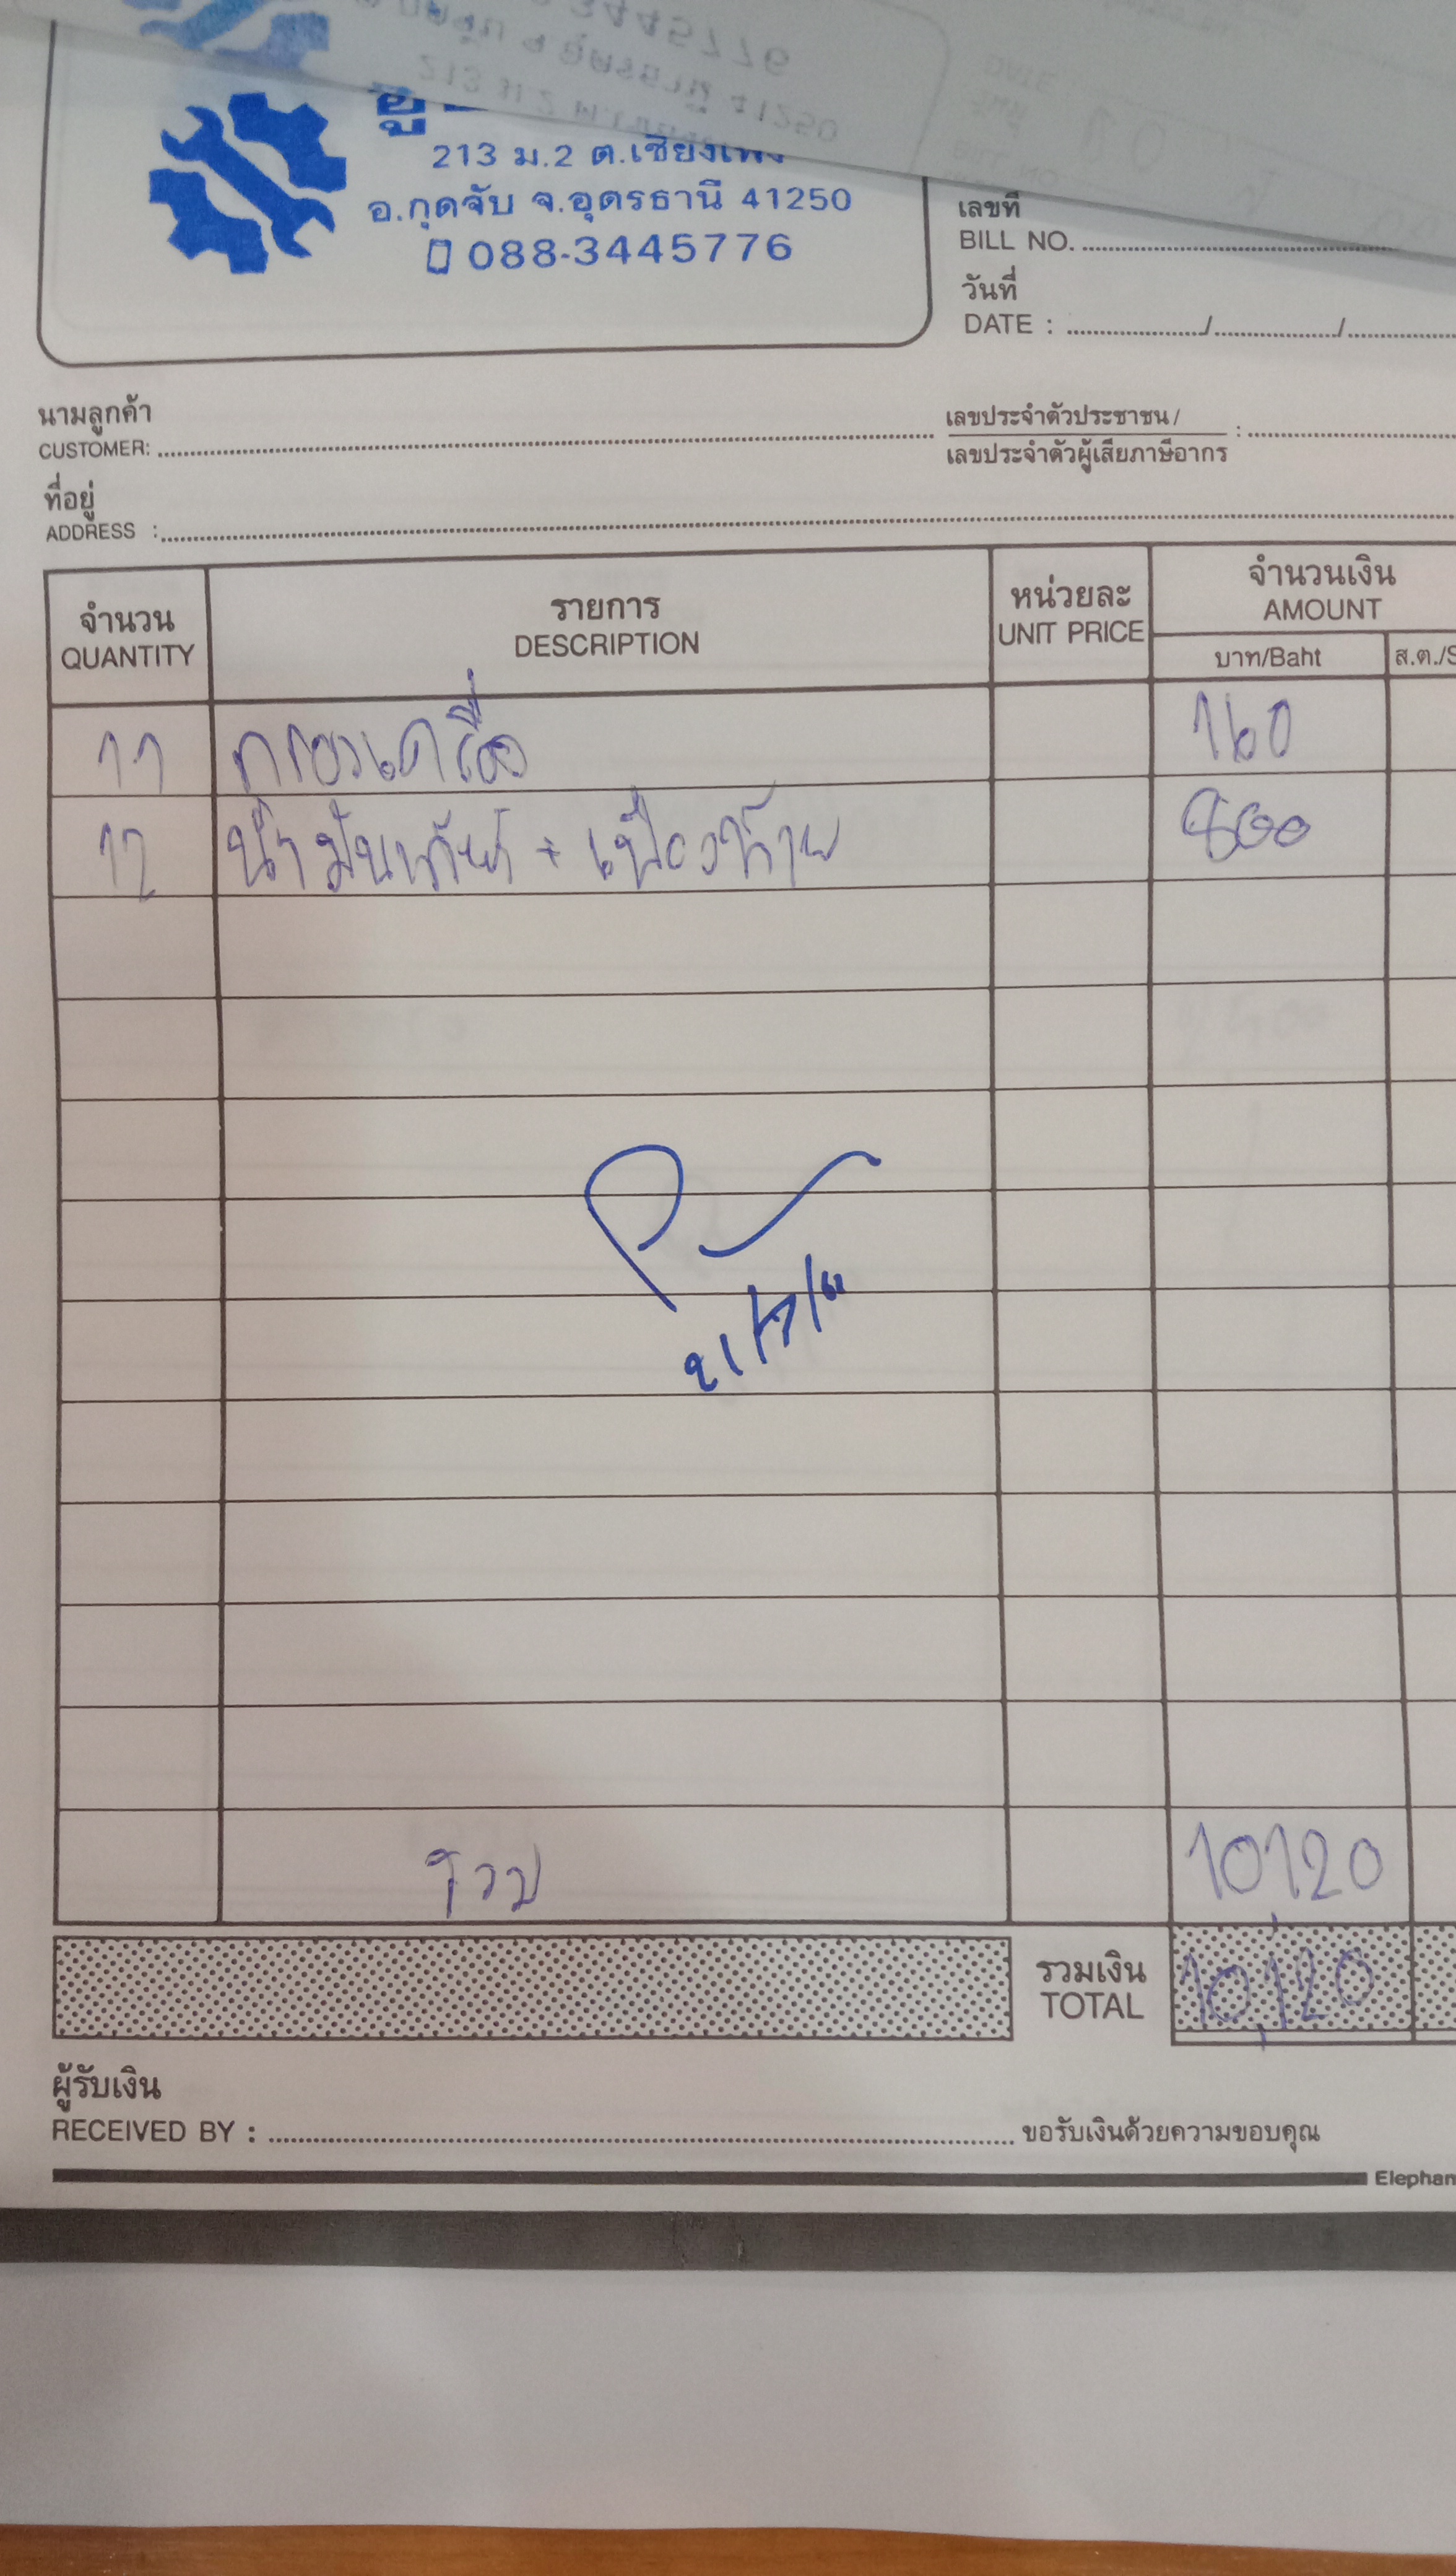 213 ม.2 ต.เชียงเพ็ง
อ.กุดจับ จ.อุดรธานี 41250
088-3445776
เลขที่
BILL NO.
วันที่
DATE : / /
นามลูกค้า
CUSTOMER:
เลขประจำตัวประชาชน /
เลขประจำตัวผู้เสียภาษีอากร :
ที่อยู่
ADDRESS :
จำนวน
QUANTITY
รายการ
DESCRIPTION
หน่วยละ
UNIT PRICE
จำนวนเงิน
AMOUNT
บาท/Baht
ส.ต./S
11 กรองเครื่อง 160
12 น้ำมันเกียร์ + เฟืองท้าย 800
รวม 10,120
รวมเงิน
TOTAL
10,120
ผู้รับเงิน
RECEIVED BY :
ขอรับเงินด้วยความขอบคุณ
Elephan